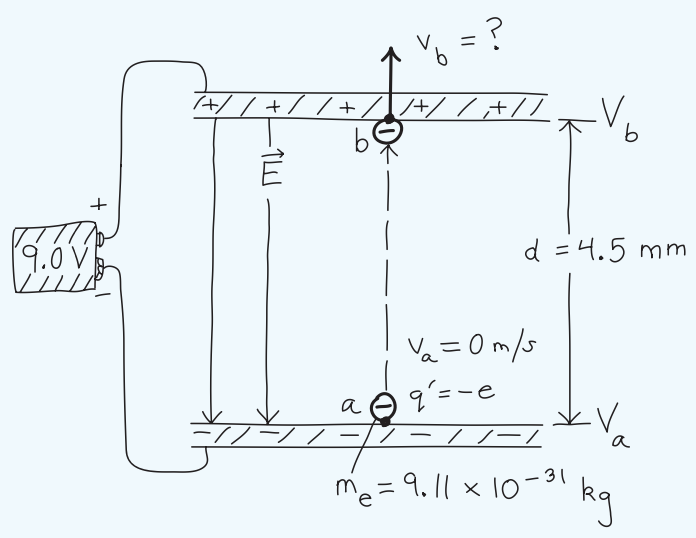 v_b = ?
+ + + + +
b −
V_b
E⃗
+
9.0 V
−
d = 4.5 mm
v_a = 0 m/s
a − q′ = −e
V_a
− − − − −
m_e = 9.11 × 10⁻³¹ kg